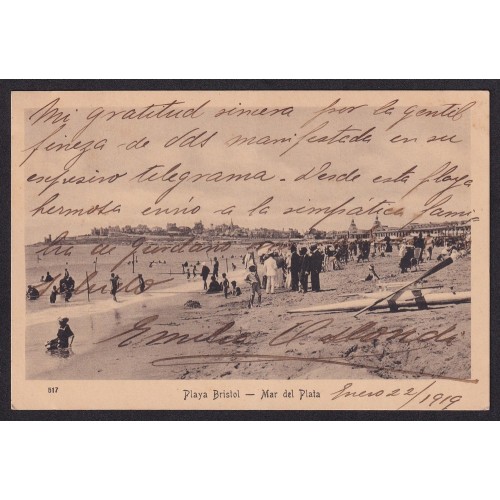 Mi gratitud sincera por la gentil
fineza - de Uds manifestada en su
expresivo telegrama. - Desde esta playa
hermosa envío a la simpática fami-
lia de
saludo
Emilia
517
Playa Bristol — Mar del Plata
Enero 22/1919